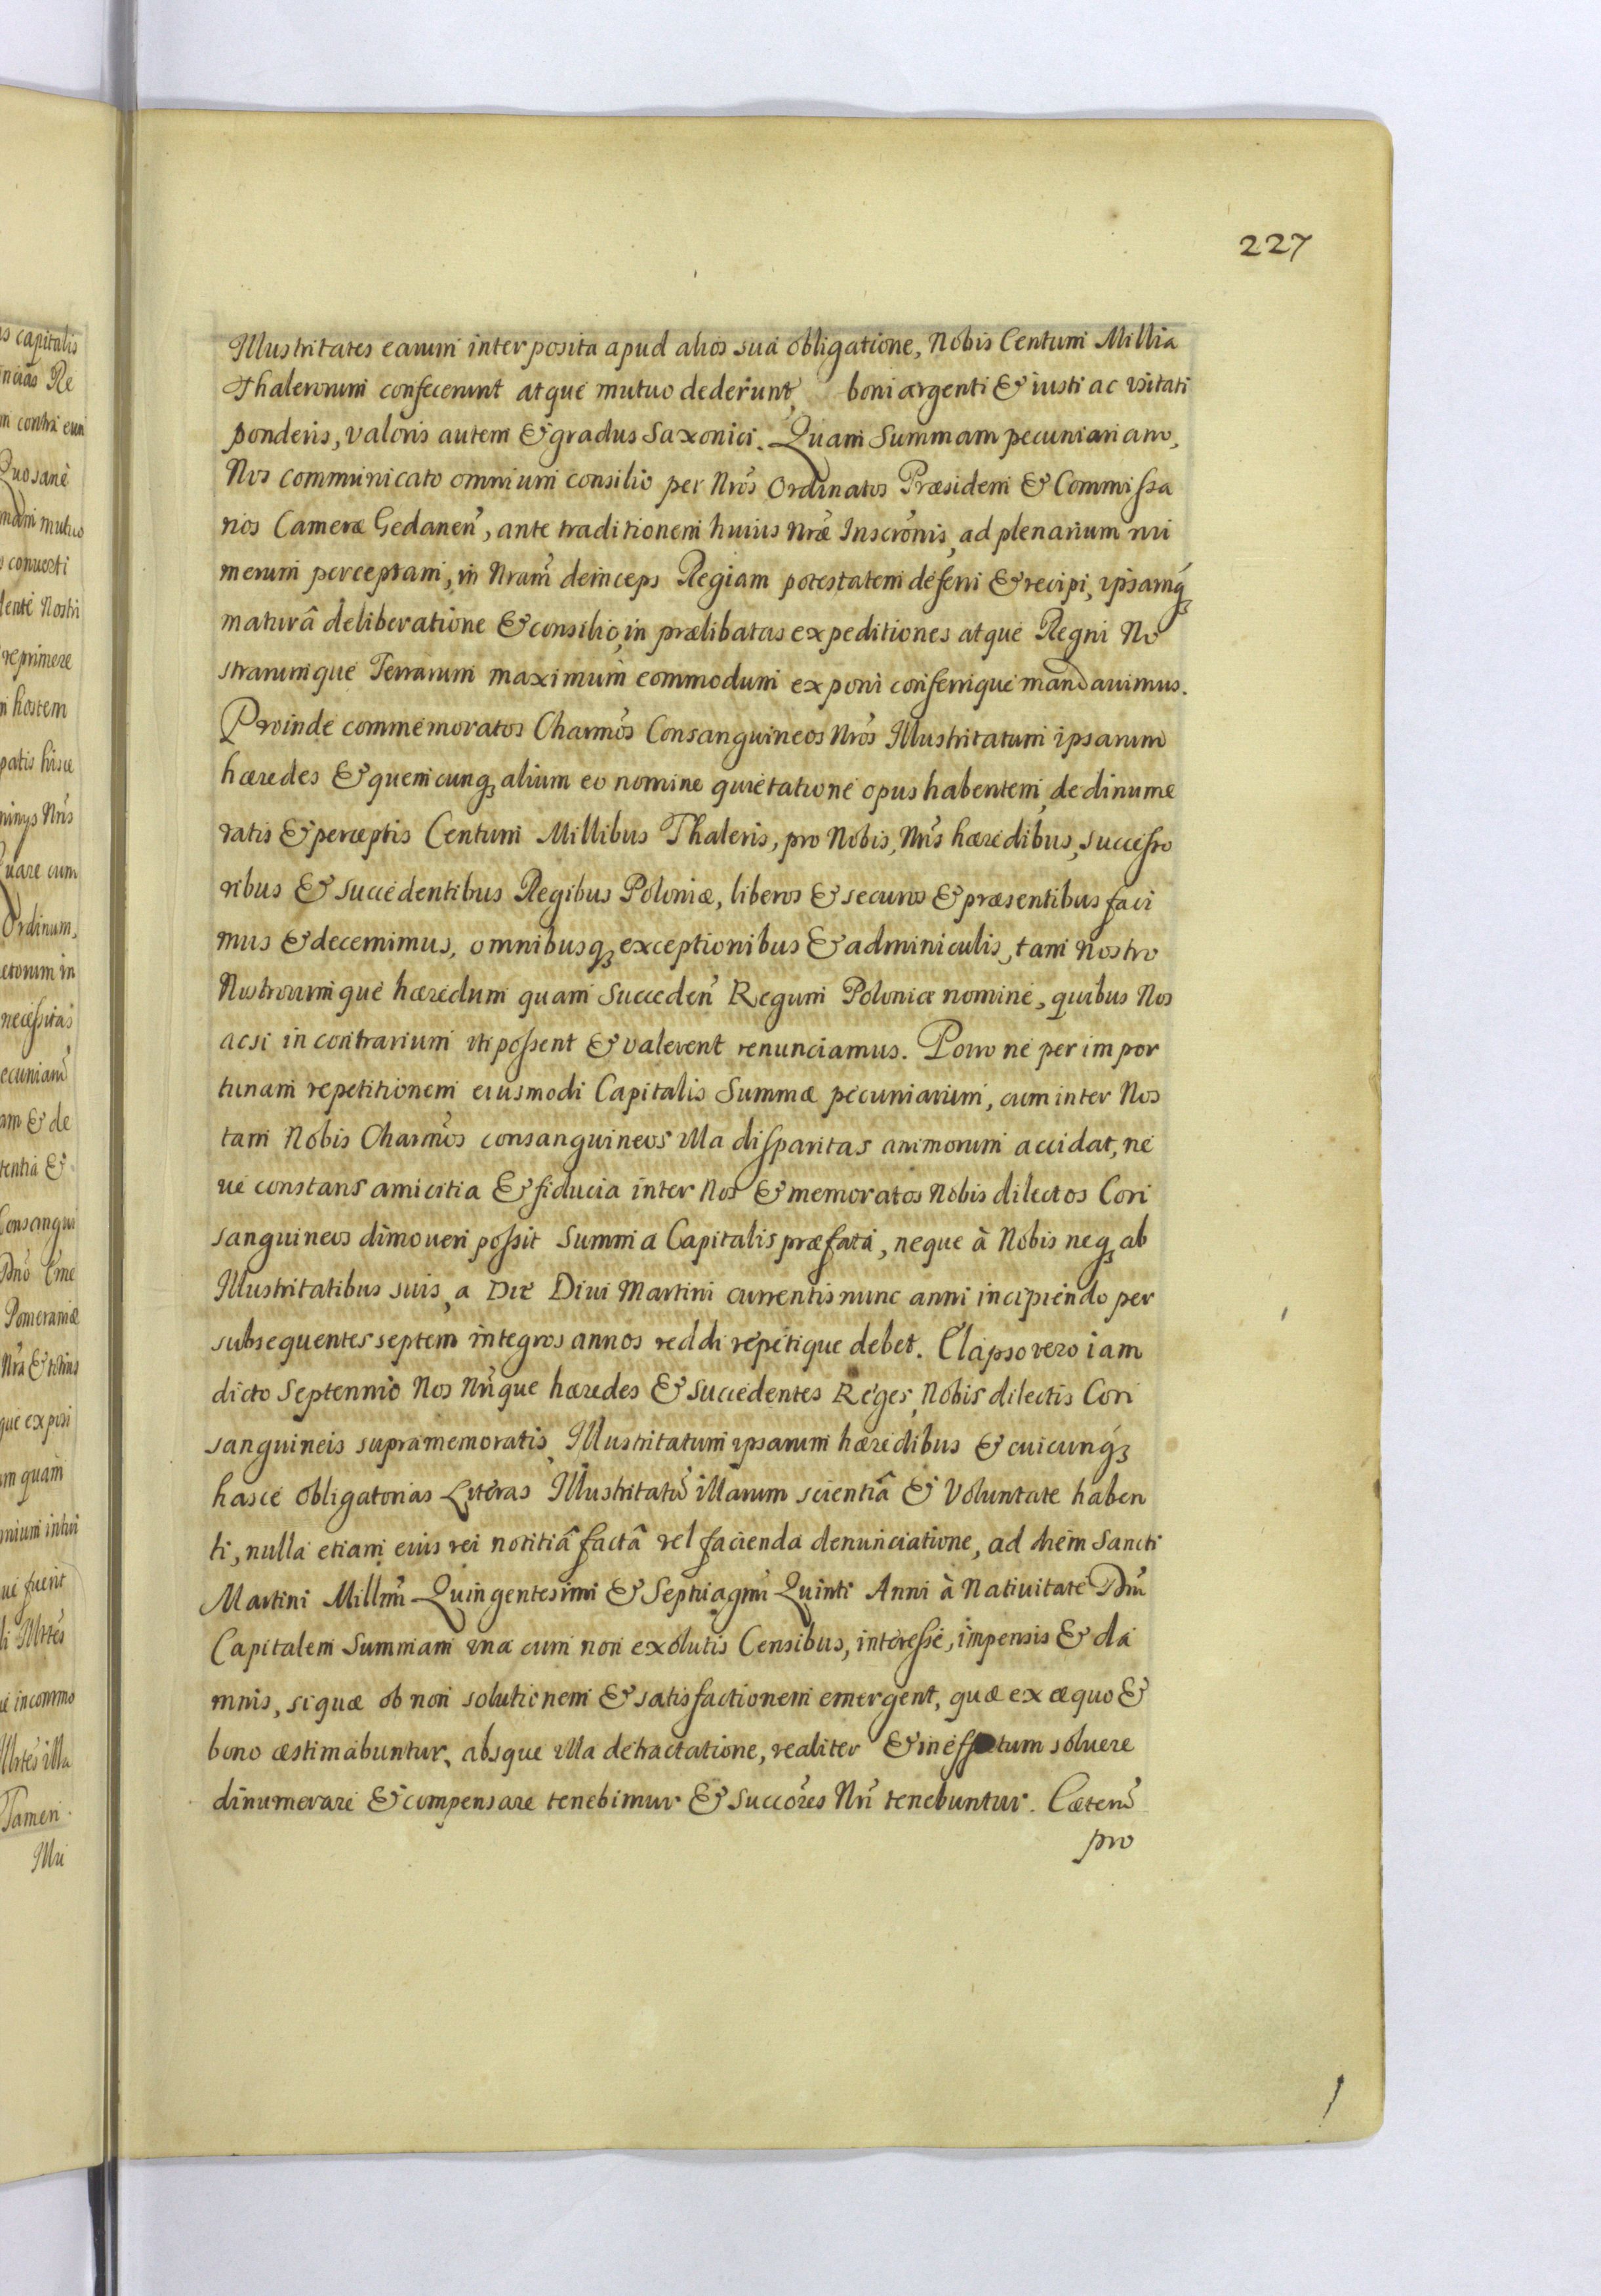 227
Illustritates earum interposita apud alios sua obligatione, Nobis Centum Millia
Thalerorum confecerunt atque mutuo dederunt, boni argenti & iusti ac vsitati
ponderis, valoris autem & gradus Saxonici. Quam Summam pecuniariam,
Nos communicato omnium consilio per Nrōs Ordinatos Præsidem & Commissa
rios Cameræ Gedanen̄, ante traditionem huius Nrǣ Inscrōnis, ad plenarium nu
merum perceptam, in Nram̄ deinceps Regiam potestatem deferri & recipi, ipsamq́ꝫ
maturâ deliberatione & consilio, in prælibatas expeditiones atque Regni No
strarumque Terrarum maximum commodum exponi conferrique mandauimus.
Proinde commemoratos Charmōs Consanguineos Nrōs Illustritatum ipsarum
hæredes & quemcunqꝫ alium eo nomine quietatione opus habentem, de dinume
ratis & perceptis Centum Millibus Thaleris, pro Nobis, Nrīs hæredibus, successo
ribus & succedentibus Regibus Poloniæ, liberos & securos & præsentibus faci
mus & decernimus, omnibusqꝫ exceptionibus & adminiculis, tam nostro
Nostrorumque hæredum quam Succeden̄ Regum Poloniæ nomine, quibus Nos
acsi in contrarium uti possent & valerent renunciamus. Porro ne per impor
tunam repetitionem eiusmodi Capitalis Summæ pecuniarum, cum inter Nos
tam Nobis Charmōs consanguineos illa disparitas animorum accidat, ne
ue constans amicitia & fiducia inter Nos & memoratos Nobis dilectos Con
sanguineos dimoueri possit Summa Capitalis præfata, neque à Nobis neqꝫ ab
Illustritatibus suis, a Die Diui Martini currentis nunc anni incipiendo per
subsequentes septem integros annos reddi repetique debet. Elapso vero iam
dicto Septennio Nos Nrīque hæredes & Succedentes Reges, Nobis dilectis Con
sanguineis supramemoratis, Illustritatum ipsarum hæredibus & cuicunq́ꝫ
hasce obligatorias Literas Illustritatū illarum scientiâ & Voluntate haben
ti, nulla etiam eius rei notitiâ factâ vel facienda denunciatione, ad diem Sancti
Martini Millmī Quingentesimi & Septuagmī Quinti Anni à Natiuitate Dnī
Capitalem Summam una cum non exolutis Censibus, interesse, impensis & da
mnis, si quæ ob non solutionem & satisfactionem emergent, quæ ex æquo &
bono æstimabuntur, absque ulla detractatione, realiter & in effectum soluere
dinumerare & compensare tenebimur & Succōres Nrī tenebuntur. Cæterū
pro